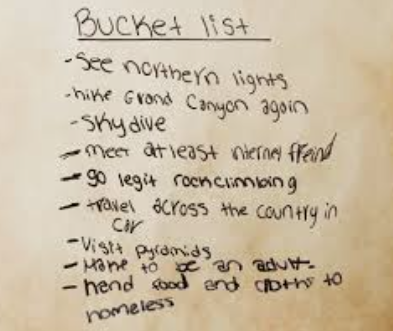 Bucket list
-See northern lights
-hike Grand Canyon again
-Skydive
-meet atleast internet freind
-go legit rockclimbing
-travel across the country in
Car
-Visit pyramids
-Make to be an adult
-hend food and cloths to
homeless